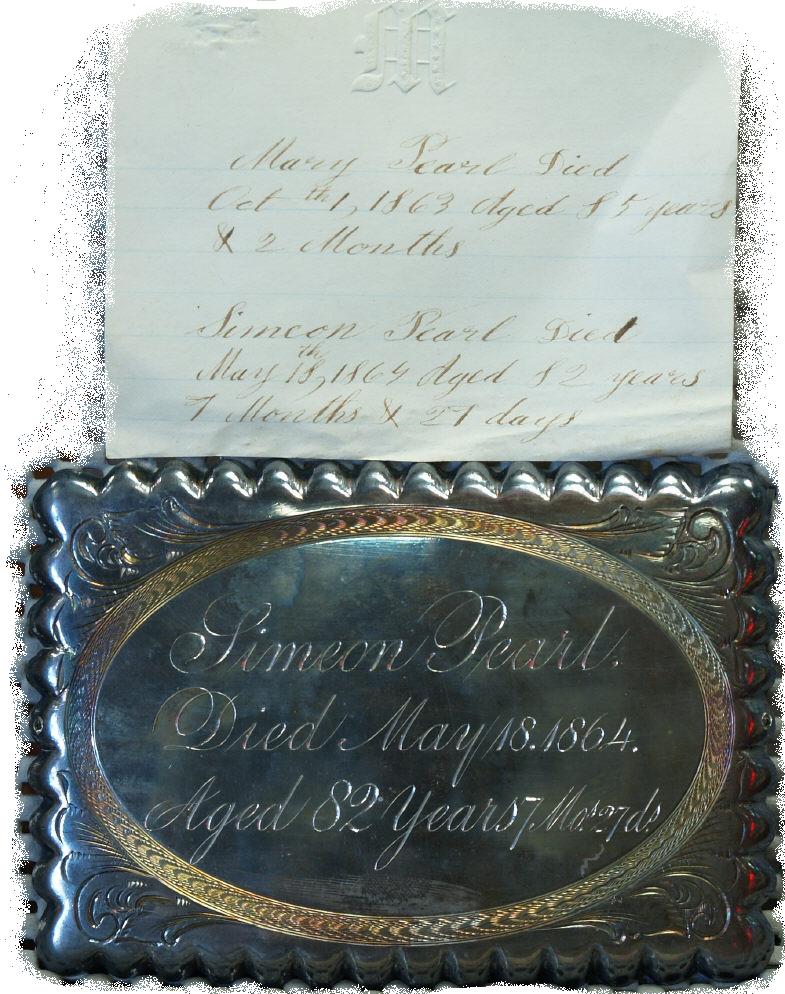 M
Mary Pearl Died
Oct th 1, 1863 Aged 85 years
& 2 Months
Simeon Pearl Died
May 18th, 1864 Aged 82 years
7 Months & 27 days
Simeon Pearl.
Died May 18. 1864.
Aged 82 Years 7 Mos 27 ds.